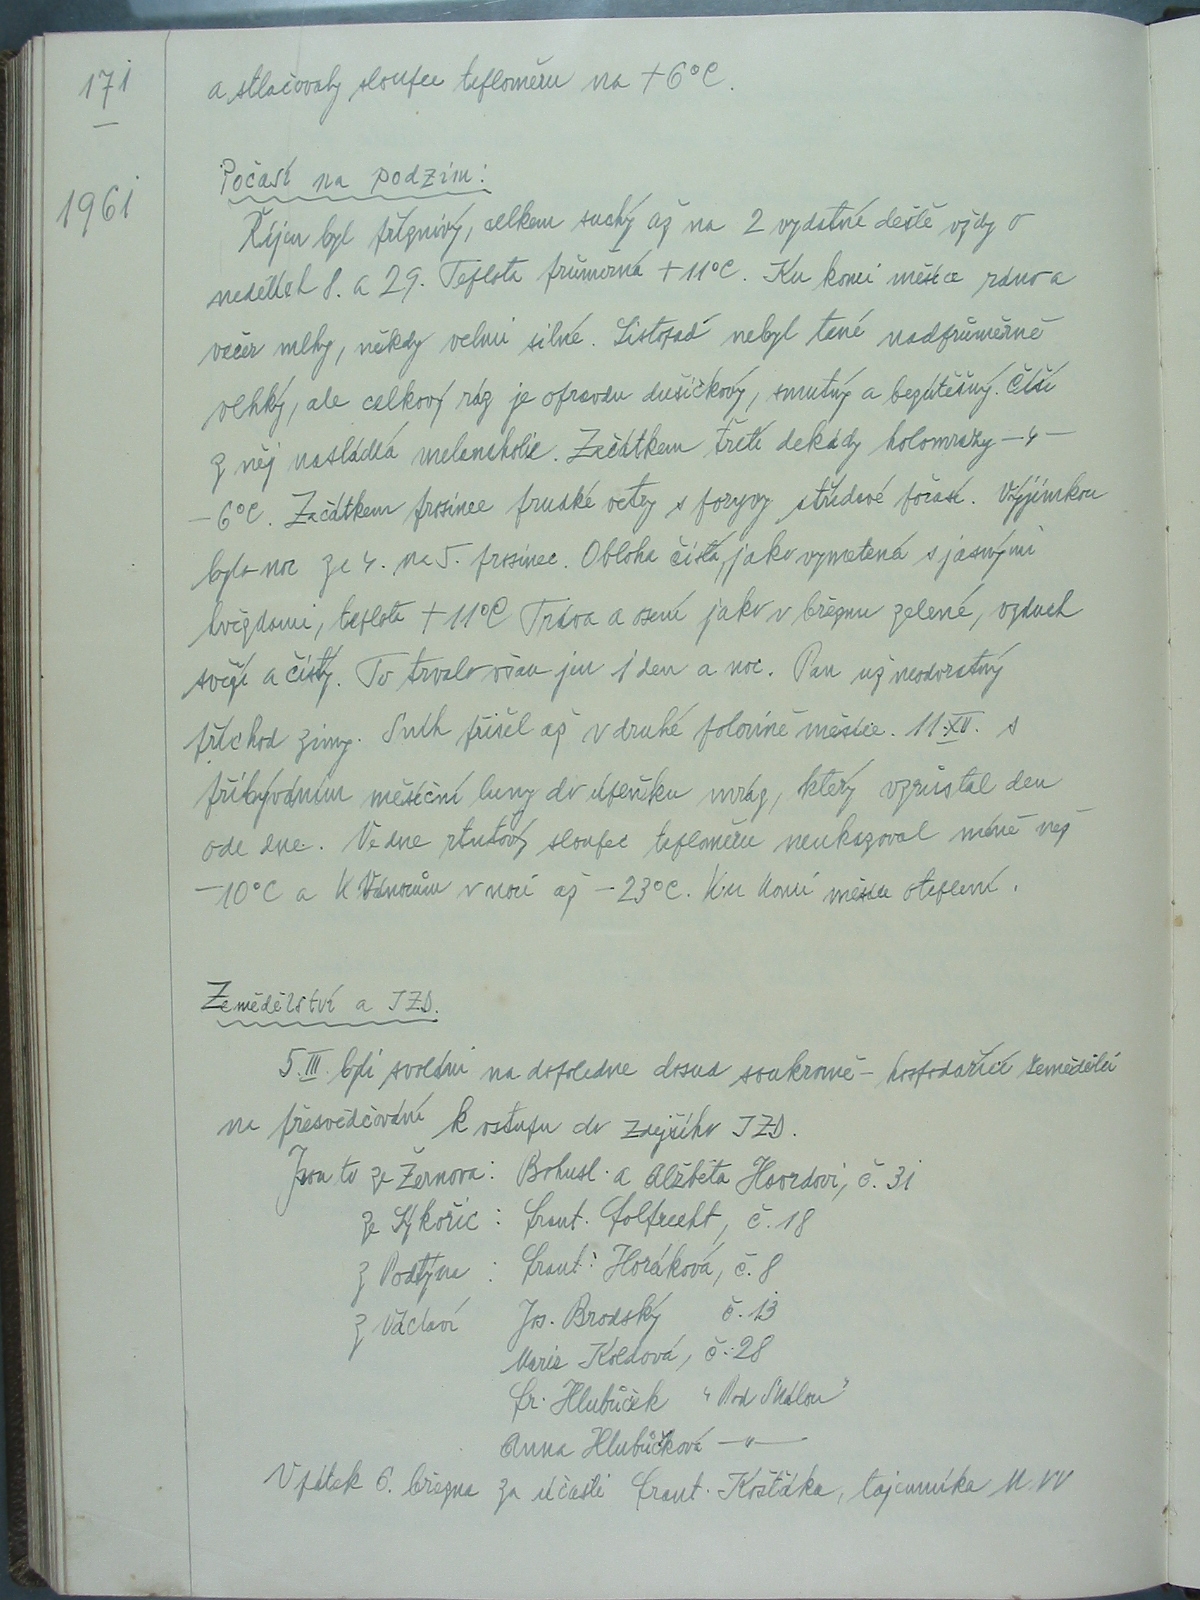 171
a stlačovaly sloupec teploměru na +6°C.
1961
Počasí na podzim:
Říjen byl příznivý, celkem suchý až na 2 vydatné deště vždy o
nedělích 8. a 29. Teplota průměrná +11°C. Ku konci měsíce ráno a
večer mlhy, někdy velmi silné. Listopad nebyl také nadprůměrně
vlhký, ale celkový ráz je opravdu dušičkový, smutný a bezútěšný. Čiší
z něj nasládlá melancholie. Začátkem třetí dekády holomrazy -4-
-6°C. Začátkem prosince prudké větry s poryvy střídavé počasí. Výjimkou
byla noc ze 4. na 5. prosinec. Obloha čistá, jako vymetená s jasnými
hvězdami, teplota +11°C Tráva a osení jako v březnu zelené, vzduch
svěží a čistý. To trvalo však jen 1 den a noc. Pak už neodvratný
příchod zimy. Sníh přišel až v druhé polovině měsíce. 11.XII. s
přibýváním měsíční luny do úplňku mráz, který vzrůstal den
ode dne. Ve dne rtuťový sloupec teploměru neukazoval méně než
-10°C a k Vánocům v noci až -23°C. Ku konci měsíce oteplení.
Zemědělství a JZD.
5.III. byli svoláni na dopoledne dosud soukromě-hospodařící zemědělci
na přesvědčování k vstupu do zdejšího JZD.
Jsou to ze Žernova: Bohusl. a Alžběta Havrdovi, č. 31
ze Sýkořic: Frant. Folprecht, č. 18
z Podtýna: Frant. Horáková, č. 8
z Václaví Jos. Brodský č. 13
Marie Koldová, č. 28
Fr. Hlubůček "Pod Skálou"
Anna Hlubůčková -"-
V pátek 6. března za účasti Frant. Košťáka, tajemníka MNV